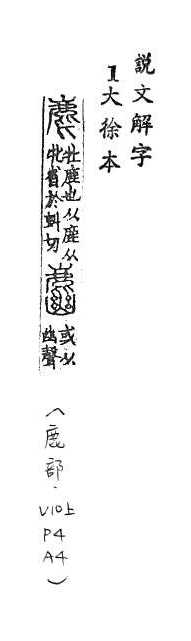 説文解字
1大徐本
麀牡鹿也从鹿从
牝省於虯切
或从
幽聲
(鹿部·
V10上
P4
A4)